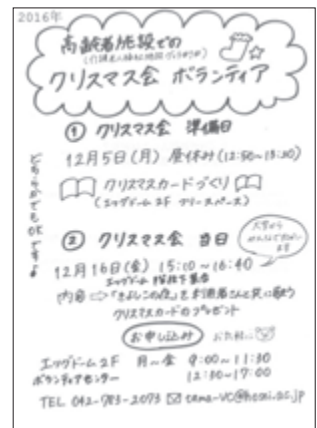 2016年
高齢者施設での
クリスマス会 ボランティア
① クリスマス会 準備日
12月5日(月) 昼休み(12:50~13:20)
クリスマスカードづくり
(エッグドーム 2F フリースペース)
どちらかでもOKです♪
② クリスマス会 当日
12月16日(金) 15:10~16:40
エッグドーム 階段下集合
内容 ⇨「きよしこの夜」を利用者さんと共に歌う
クリスマスカードのプレゼント
お申し込み
エッグドーム 2F 月~金 9:00~11:30
ボランティアセンター 12:30~17:00
TEL 042-783-2073 ✉ tama-vc@hosei.ac.jp